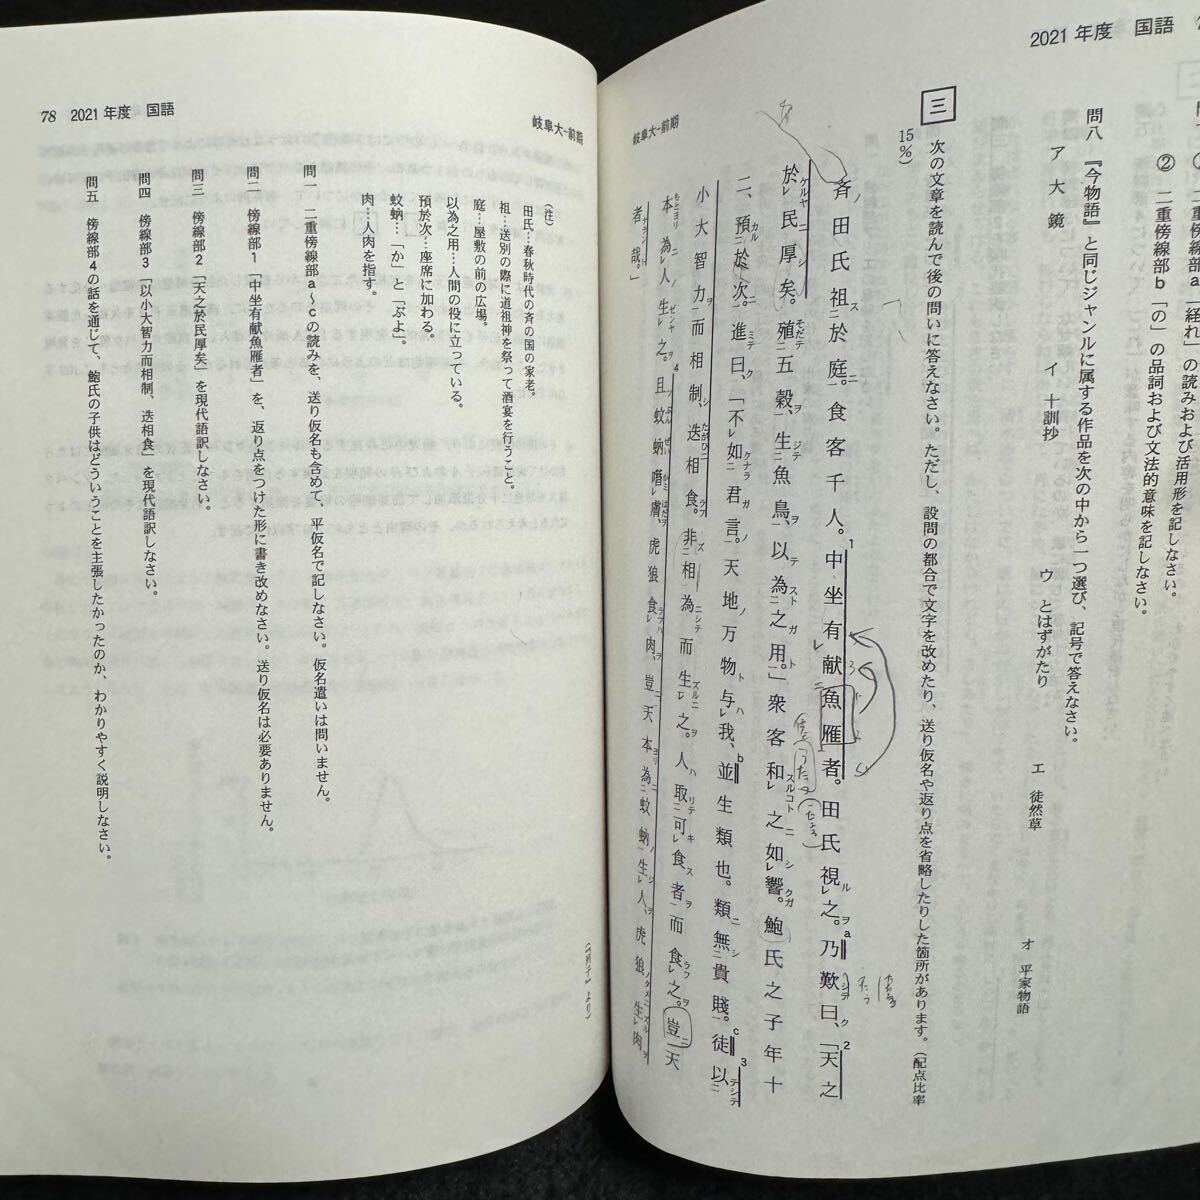 2021年度　国語
② 二重傍線部b「の」の品詞および文法的意味を記しなさい。
問八　『今物語』と同じジャンルに属する作品を次の中から一つ選び、記号で答えなさい。
ア 大鏡　イ 十訓抄　ウ とはずがたり　エ 徒然草　オ 平家物語
三　次の文章を読んで後の問いに答えなさい。ただし、設問の都合で文字を改めたり、送り仮名や返り点を省略したりした箇所があります。（配点比率
15％）
斉田氏祖於庭。食客千人。中坐有献魚雁者。田氏視之。乃歎曰、「天之
於民厚矣。殖五穀、生魚鳥、以為之用。」衆客和之如響。鮑氏之子年十
二、預於次。進曰、「不如君言。天地万物与我、並生類也。類無貴賤。徒以
小大智力而相制、迭相食。非相為而生之。人取可食者而食之。豈天
本為人生之。且蚊蚋噆膚、虎狼食肉、豈天本為蚊蚋生人、虎狼生肉
者哉。」
岐阜大-前期
78　2021年度　国語
岐阜大-前期
（『列子』より）
（注）
田氏…春秋時代の斉の国の家老。
祖…送別の際に道祖神を祭って酒宴を行うこと。
庭…屋敷の前の広場。
以為之用…人間の役に立っている。
預於次…座席に加わる。
蚊蚋…「か」と「ぶよ」。
肉…人肉を指す。
問一　二重傍線部a～cの読みを、送り仮名も含めて、平仮名で記しなさい。仮名遣いは問いません。
問二　傍線部1「中坐有献魚雁者」を、返り点をつけた形に書き改めなさい。送り仮名は必要ありません。
問三　傍線部2「天之於民厚矣」を現代語訳しなさい。
問四　傍線部3「以小大智力而相制、迭相食」を現代語訳しなさい。
問五　傍線部4の話を通じて、鮑氏の子供はどういうことを主張したかったのか、わかりやすく説明しなさい。